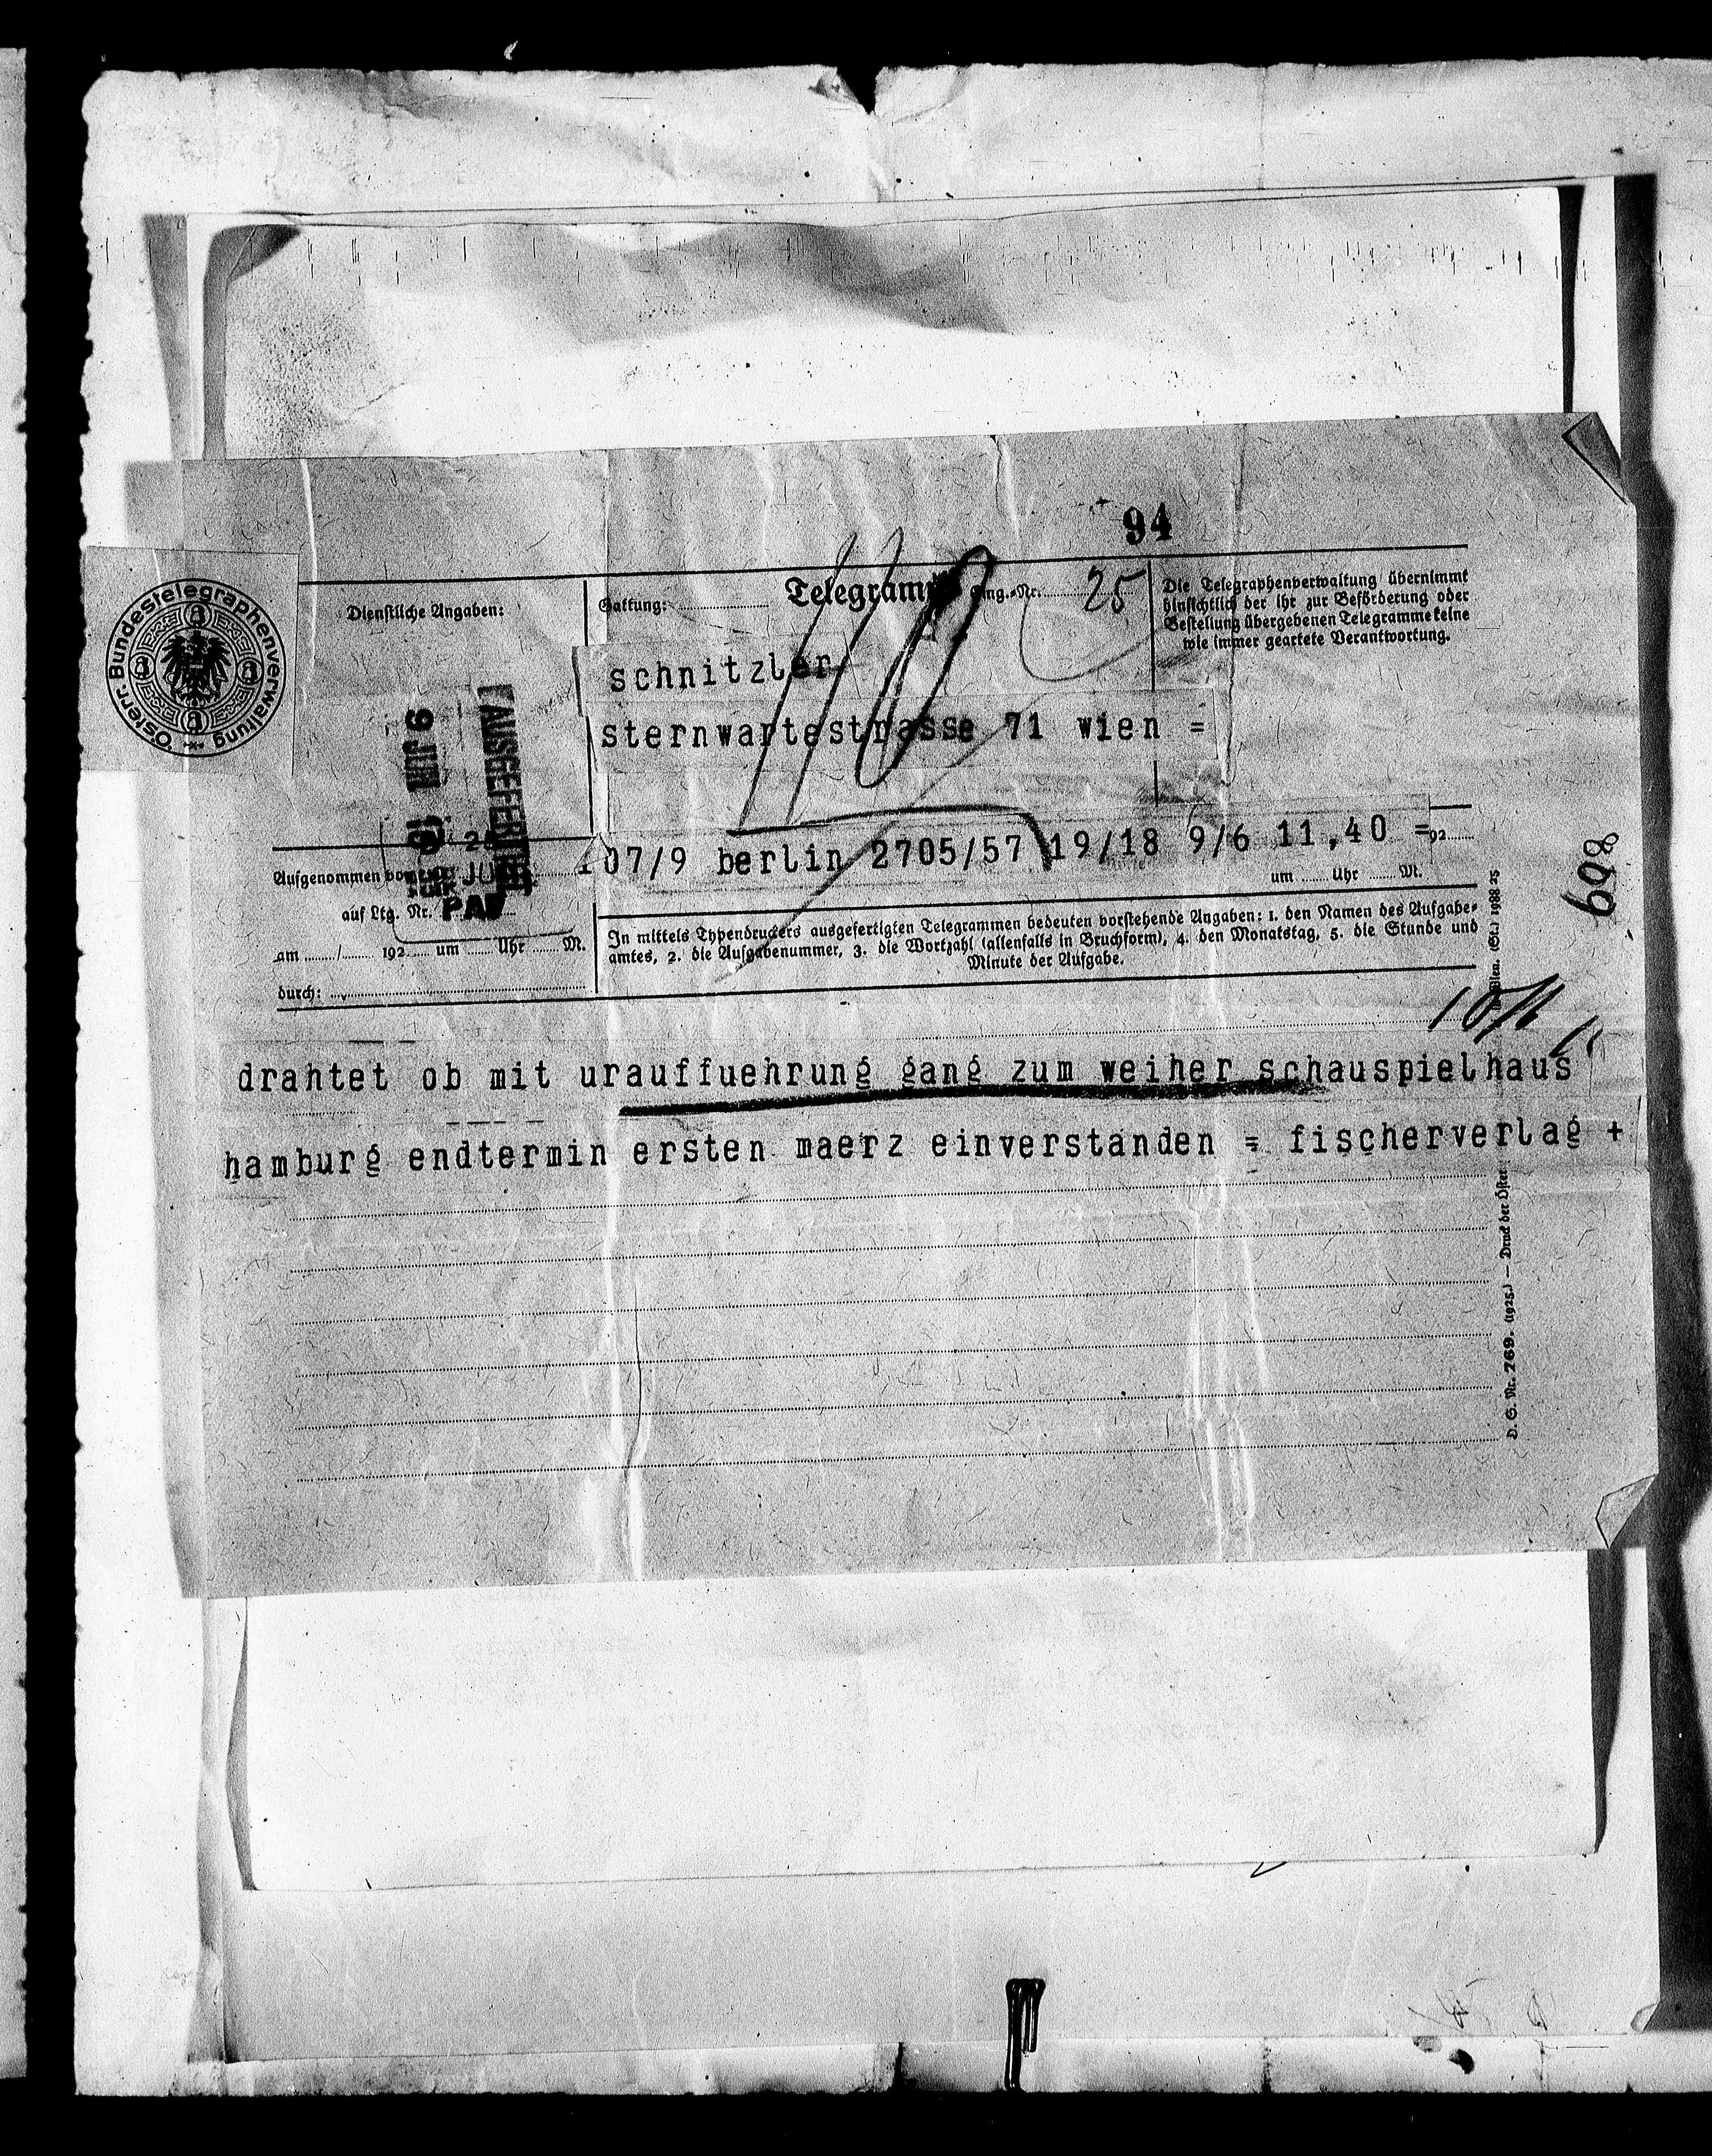 94
Österr. Bundestelegraphenverwaltung
Dienstliche Angaben:
Gattung:
Telegramm
Eing.-Nr. 25
Die Telegraphenverwaltung übernimmt
hinsichtlich der ihr zur Beförderung oder
Bestellung übergebenen Telegramme keine
wie immer geartete Verantwortung.
schnitzler
sternwartestrasse 71 wien =
9 JUN
AUSGEFERTIGT
107/9 berlin 2705/57 19/18 9/6 11,40 =
92
Aufgenommen von
um Uhr M.
auf Ltg. Nr.
am / 192 um Uhr M.
durch:
In mittels Typendruckers ausgefertigten Telegrammen bedeuten vorstehende Angaben: 1. den Namen des Aufgabe-
amtes, 2. die Aufgabenummer, 3. die Wortzahl (allenfalls in Bruchform), 4. den Monatstag, 5. die Stunde und
Minute der Aufgabe.
809
drahtet ob mit urauffuehrung gang zum weiher schauspielhaus
hamburg endtermin ersten maerz einverstanden = fischerverlag +
D. S. Nr. 769. (1925.) — Druck der Öster
Wien. (St.) 1988 25